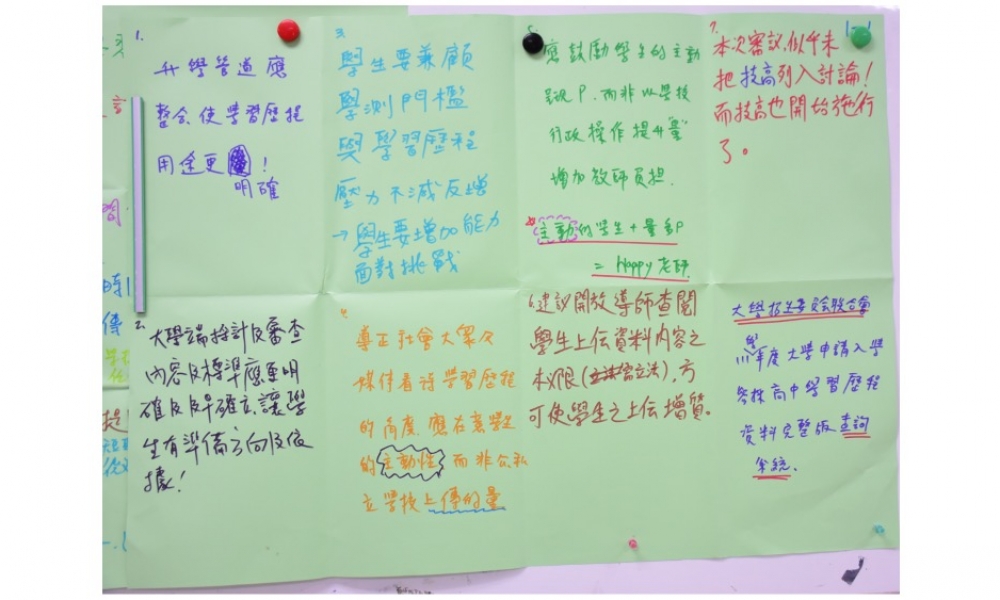 1.
升學管道應
整合,使學習歷程
用途更!
明確
2.
大學端採計及審查
內容及標準應更明
確及及早確立,讓學
生有準備方向及依
據!
3.
學生要兼顧
學測門檻
與學習歷程
壓力不減反增
→學生要增加能力
面對挑戰
4.
導正社會大眾々
媒体看待學習歷程
的角度,應在意學生
的主動性而非公私
立學校上傳的量
5.
應鼓勵學生的主動
呈現P,而非以學校
行政操作提升量
增加教師負担.
主動的學生+量多P
= Happy老師
6.建議開放導師查閱
學生上伝資料內容之
权限(立法),方
可使學生之上伝增質。
7.
本次審議,似乎未
把技高列入討論!
而技高也開始施行
了。
1-1
大學招生委員會联合會
111學年度大學申請入學
參採高中學習歷程
資料完整版查詢
系統.